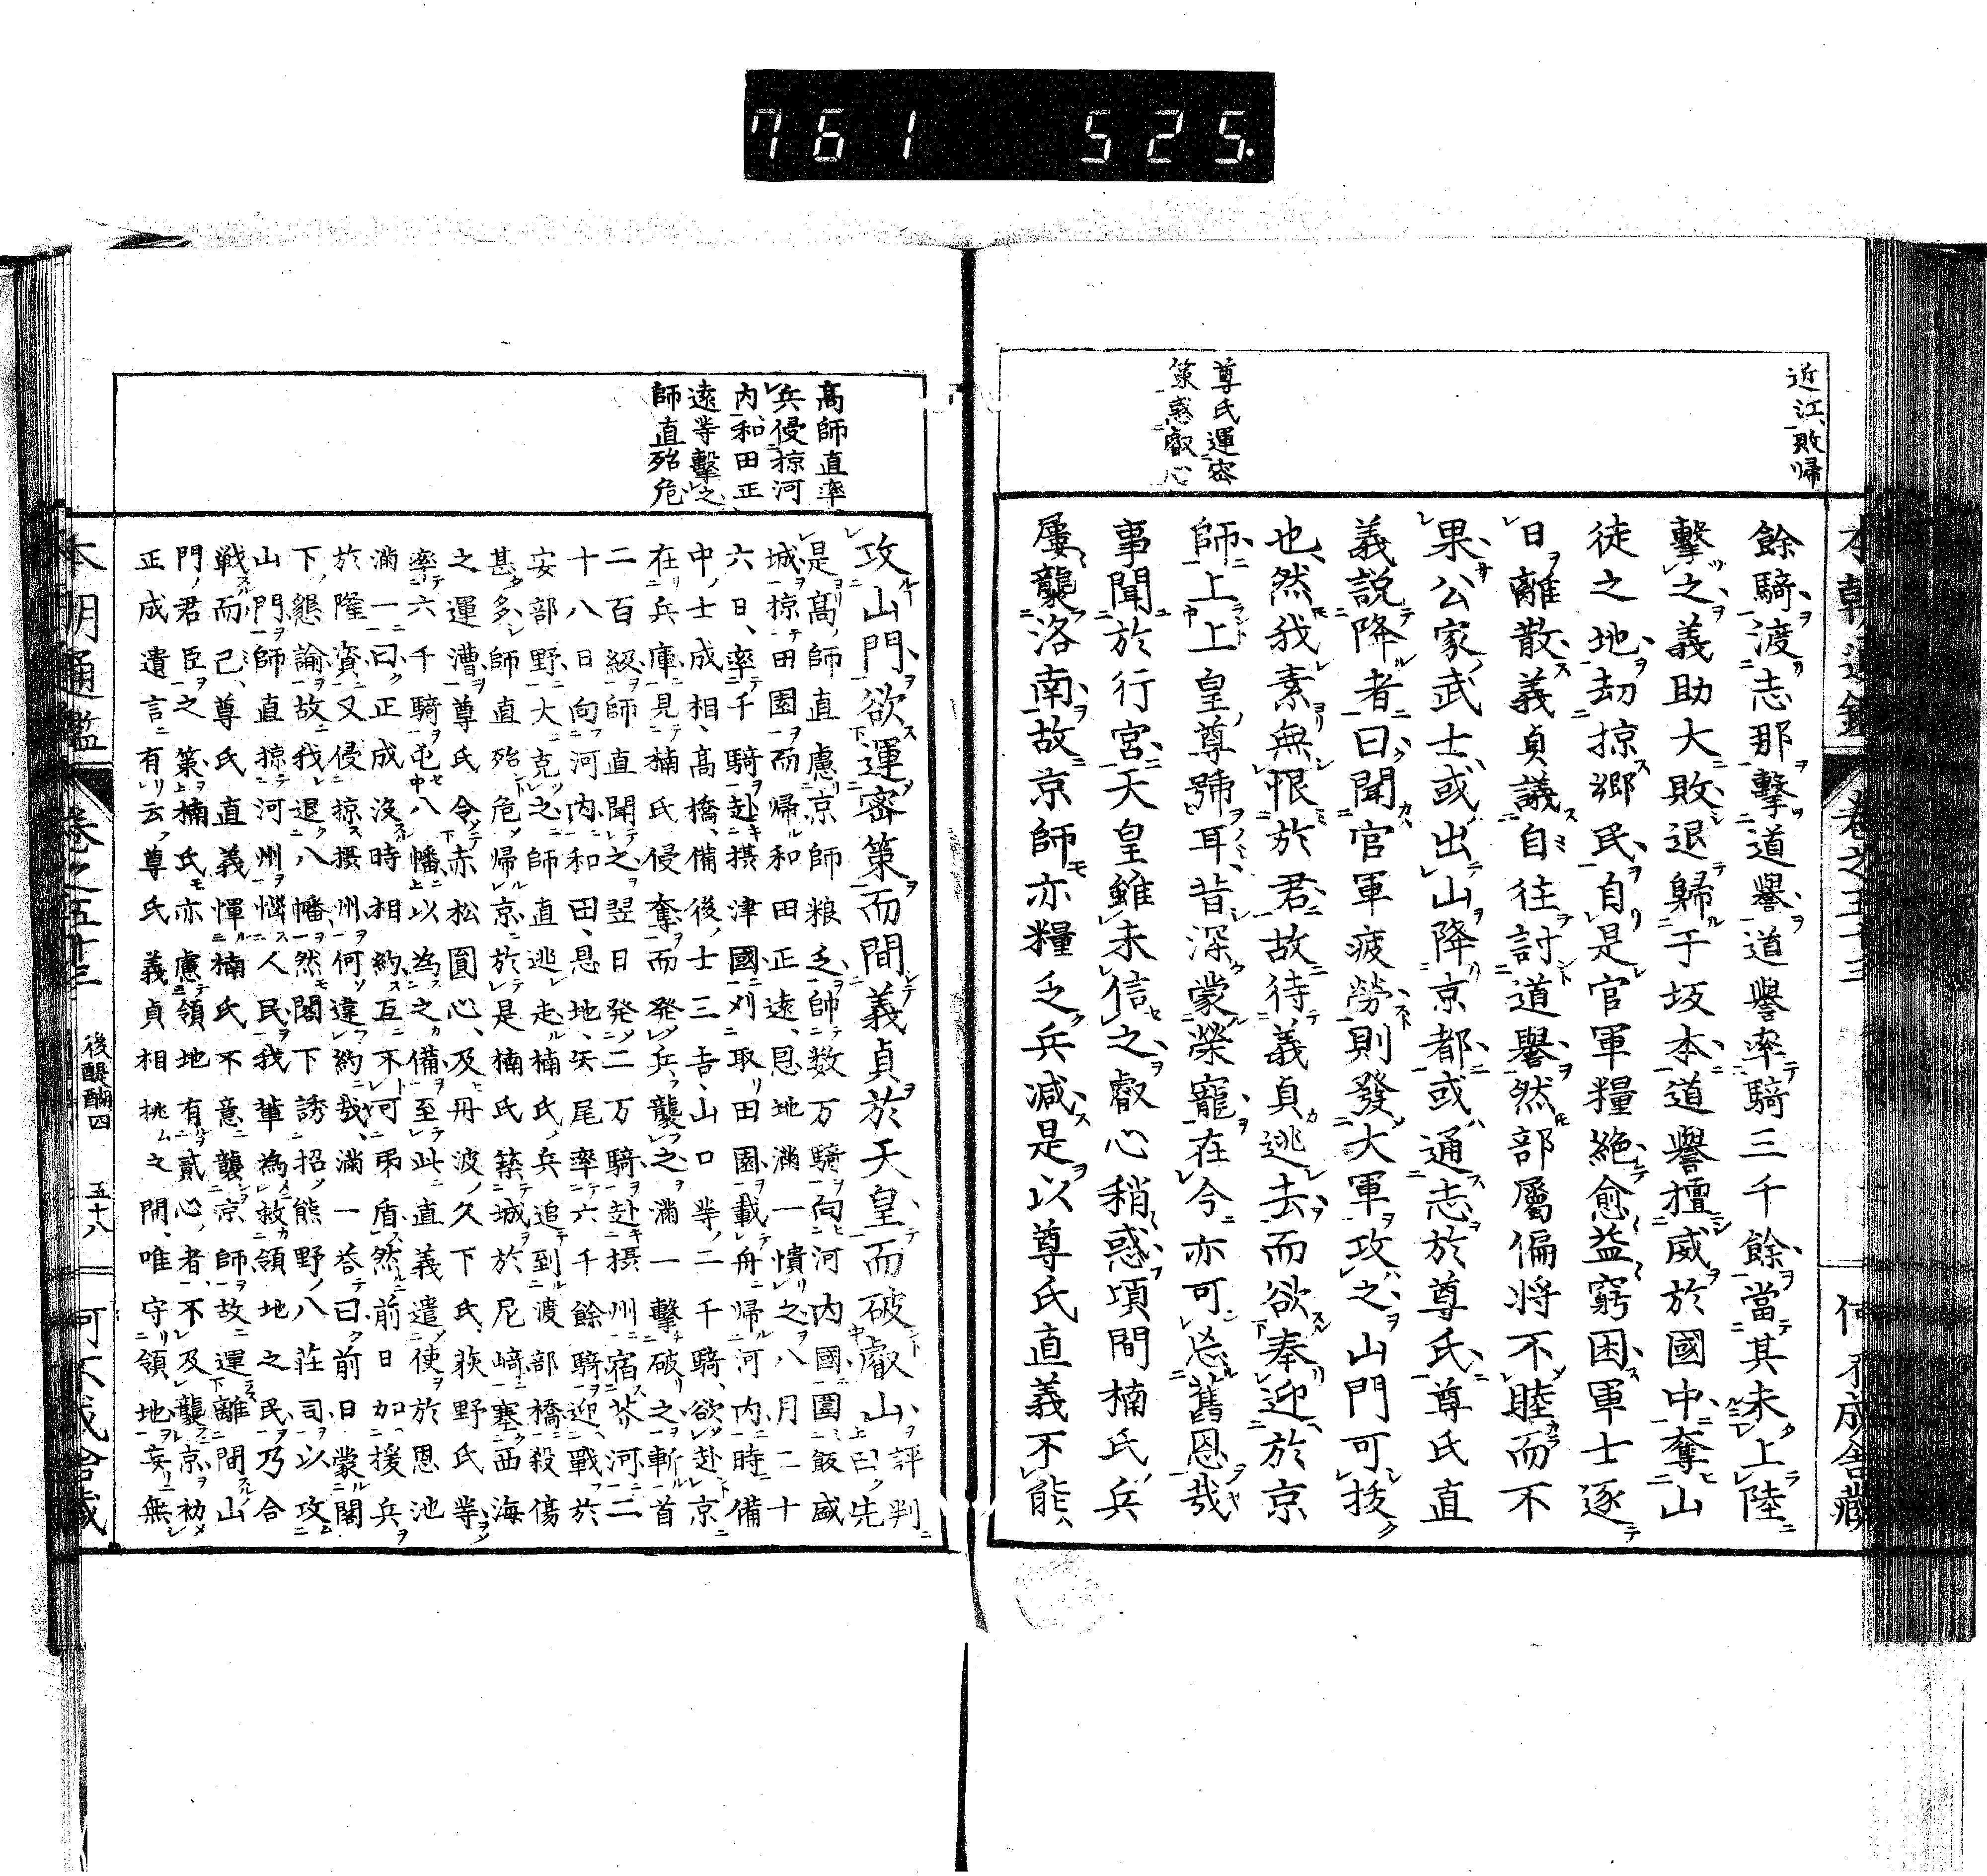 761 525.
近江敗帰
尊氏運密
策惑叡心
餘騎渡志那擊道譽道譽率騎三千餘當其未上陸
擊之義助大敗退歸于坂本道譽擅威於國中奪山
徒之地劫掠郷民自是官軍糧絶愈益窮困軍士逐
日離散義貞議自往討道譽然部屬偏将不睦而不
果公家武士或出山降京都或通志於尊氏尊氏直
義説降者曰聞官軍疲勞則發大軍攻之山門可抜
也然我素無恨於君故待義貞逃去而欲奉迎於京
師上上皇尊號耳昔深蒙榮寵在今亦可忘舊恩哉
事聞於行宮天皇雖未信之叡心稍惑頃間楠氏兵
屢襲洛南故京師亦糧乏兵減是以尊氏直義不能
高師直率
兵侵掠河
内和田正
遠等擊之
師直殆危
攻山門欲運密策而間義貞於天皇而破叡山評判曰先
是高師直慮京師粮乏帥数万騎向河内國圍飯盛
城掠田園而帰和田正遠恩地滿一憤之八月二十
六日率千騎赴摂津國刈取田園載舟帰河内時備
中士成相高橋備後士三吉山口等二千騎欲赴京
在兵庫見楠氏侵奪而発兵襲之滿一擊破之斬首
二百級師直聞之翌日発二万騎赴摂州宿芥河二
十八日向河内和田恩地矢尾率六千餘騎迎戰於
安部野大克之師直逃走楠氏兵追到渡部橋殺傷
甚多師直殆危帰京於是楠氏築城於尼﨑塞西海
之運漕尊氏令赤松圓心及丹波久下氏荻野氏等
率六千騎屯八幡以為之備至此直義遣使於恩池
滿一曰正成沒時相約互不可弟盾然前日加援兵
於隆資又侵掠摂州何違約哉滿一荅曰前日蒙閣
下懇諭故我退八幡然閣下誘招熊野八荘司以攻
山門師直掠河州惱人民我輩為救領地之民乃合
戦而已尊氏直義憚楠氏不意襲京師故運離間山
門君臣之策楠氏亦慮領地有貳心者不及襲京初
正成遺言有云尊氏義貞相挑之間唯守領地妄無
卷之五十三
後醍醐四
五十八